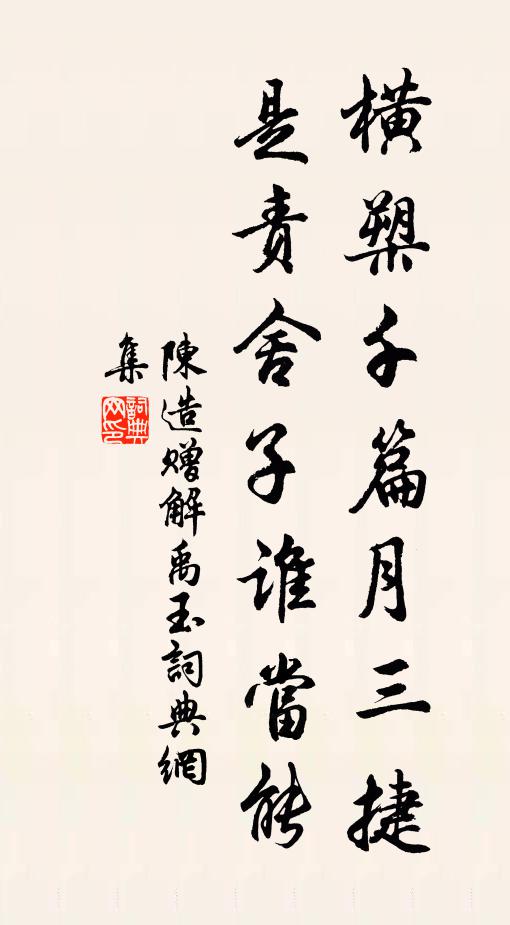 橫槊千篇月三捷
是責舍子誰當能
陳造贈解禹玉詞典網
集
詞典
网印